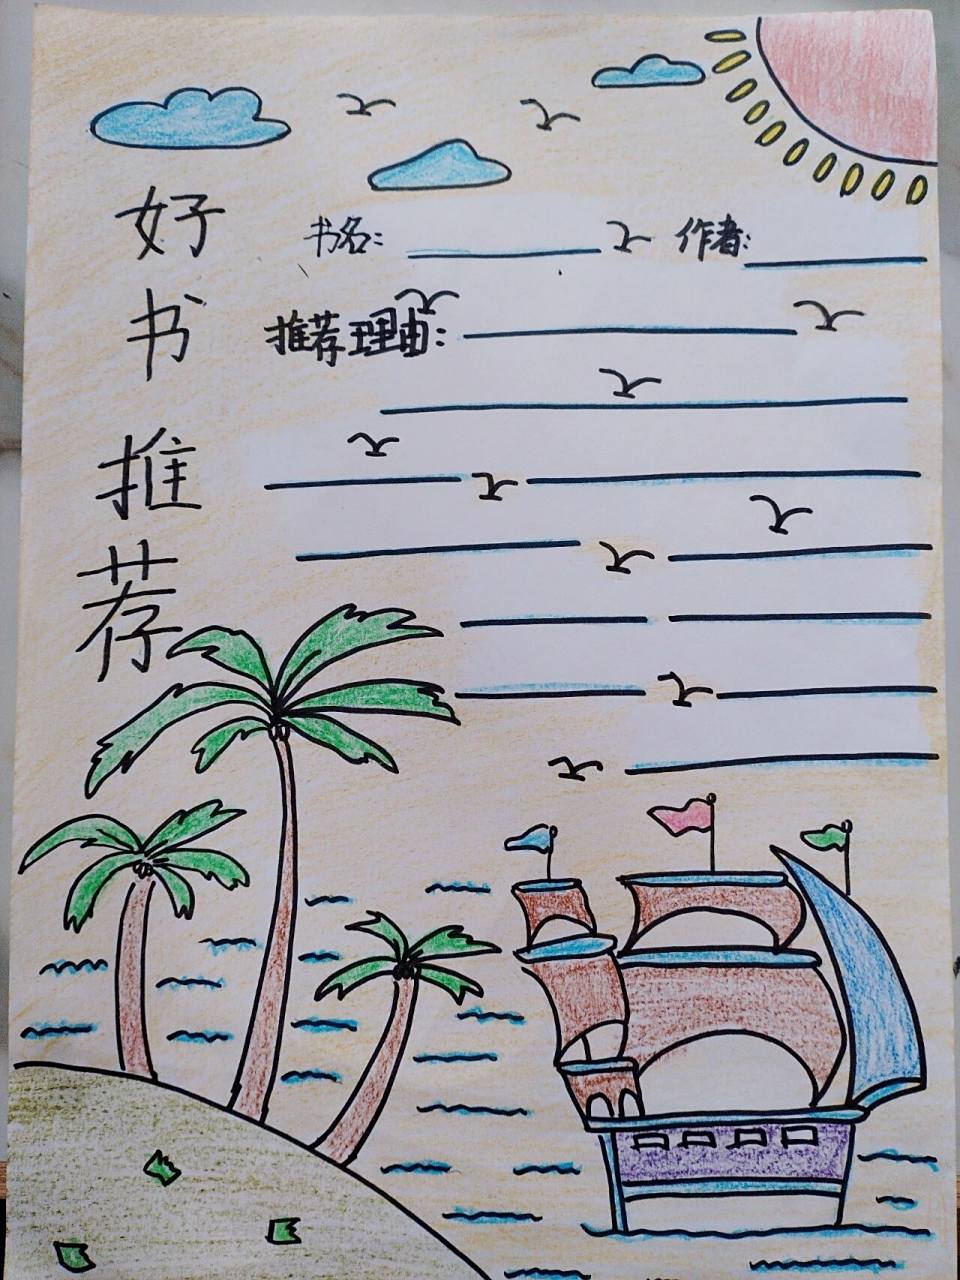 好书推荐
书名:
作者:
推荐理由: